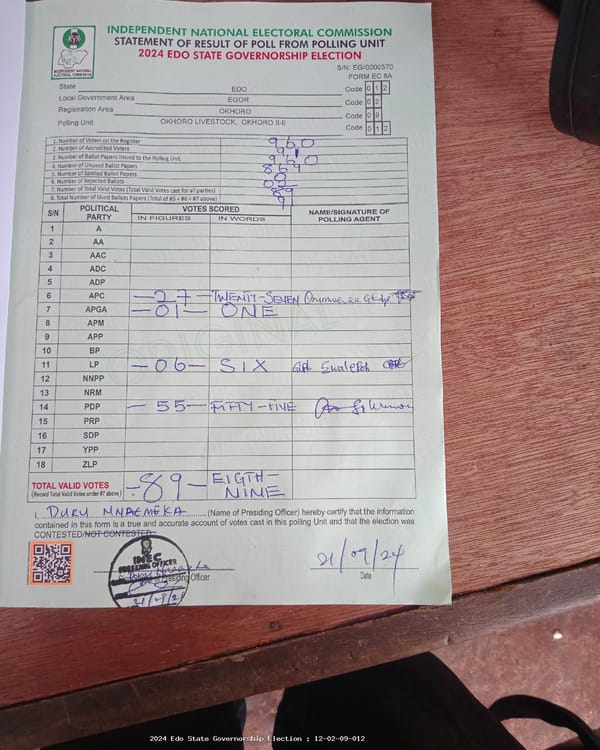 INDEPENDENT NATIONAL ELECTORAL COMMISSION
STATEMENT OF RESULT OF POLL FROM POLLING UNIT
2024 EDO STATE GOVERNORSHIP ELECTION
INEC
INDEPENDENT NATIONAL ELECTORAL COMMISSION
S/N: EG/0000570
FORM EC 8A
State EDO Code 0 1 2
Local Government Area EGOR Code 0 2
Registration Area OKHORO Code 0 9
Polling Unit OKHORO LIVESTOCK, OKHORO II-II Code 0 1 2
1. Number of Voters on the Register 960
2. Number of Accredited Voters 91
3. Number of Ballot Papers Issued to the Polling Unit 960
4. Number of Unused Ballot Papers 869
5. Number of Spoiled Ballot Papers 0
6. Number of Rejected Ballots 02
7. Number of Total Valid Votes (Total Valid Votes cast for all parties) 89
8. Total Number of Used Ballots Papers (Total of #5 + #6 + #7 above) 91
S/N POLITICAL PARTY VOTES SCORED NAME/SIGNATURE OF POLLING AGENT
IN FIGURES IN WORDS
1 A
2 AA
3 AAC
4 ADC
5 ADP
6 APC -27- TWENTY-SEVEN
7 APGA -01- ONE
8 APM
9 APP
10 BP
11 LP -06- SIX
12 NNPP
13 NRM
14 PDP -55- FIFTY-FIVE
15 PRP
16 SDP
17 YPP
18 ZLP
TOTAL VALID VOTES -89- EIGTH-NINE
(Record Total Valid Votes under #7 above)
I, DURU NNAEMEKA (Name of Presiding Officer) hereby certify that the information
contained in this form is a true and accurate account of votes cast in this polling Unit and that the election was
CONTESTED/NOT CONTESTED.
INEC
PRESIDING OFFICER
21/09/2
Presiding Officer
21/09/24
Date
2024 Edo State Governorship Election : 12-02-09-012